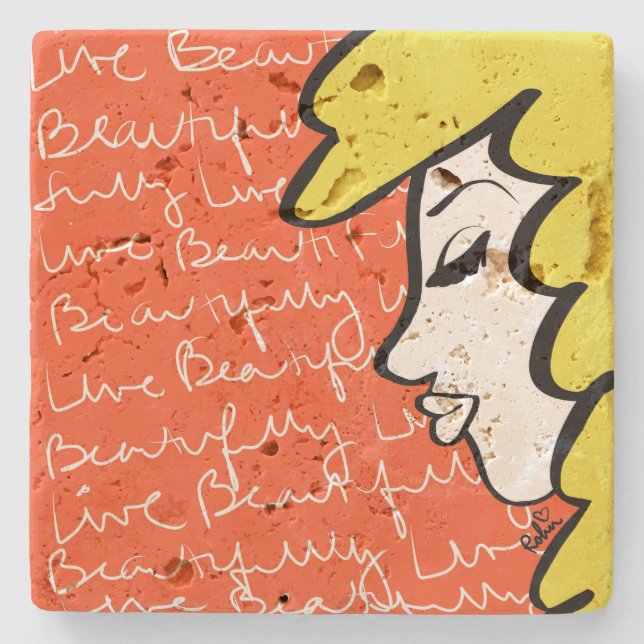 Live Beaut
Beautifully
fully Live
Live Beautifu
Beautifully Li
Live Beautiful
Beautifully Li
Live Beautiful
Beautifully Live
Live Beautifully
Robin